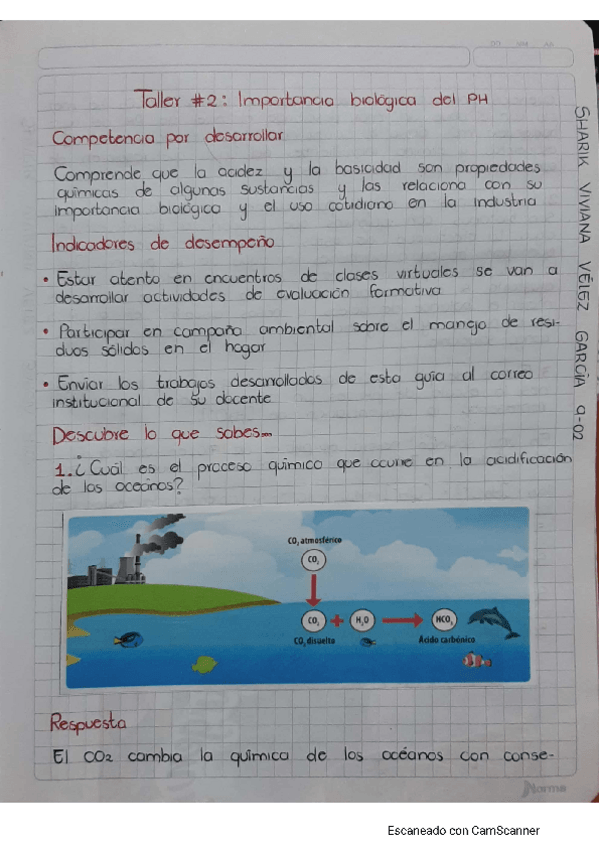 Taller #2: Importancia biológica del PH
Competencia por desarrollar
Comprende que la acidez y la basicidad son propiedades
químicas de algunas sustancias y las relaciona con su
importancia biológica y el uso cotidiano en la industria
Indicadores de desempeño
• Estar atento en encuentros de clases virtuales se van a
desarrollar actividades de evaluación formativa
• Participar en campaña ambiental sobre el manejo de resi-
duos sólidos en el hogar
• Enviar los trabajos desarrollados de esta guía al correo
institucional de su docente
Descubre lo que sabes...
1. ¿Cuál es el proceso químico que ocurre en la acidificación
de los oceános?
CO₂ atmosférico
CO₂
CO₂ + H₂O HCO₃
CO₂ disuelto Ácido carbónico
Respuesta
El CO2 cambia la química de los océanos con conse-
Norma
SHARIK VIVIANA VÉLEZ GARCÍA 9-02
Escaneado con CamScanner